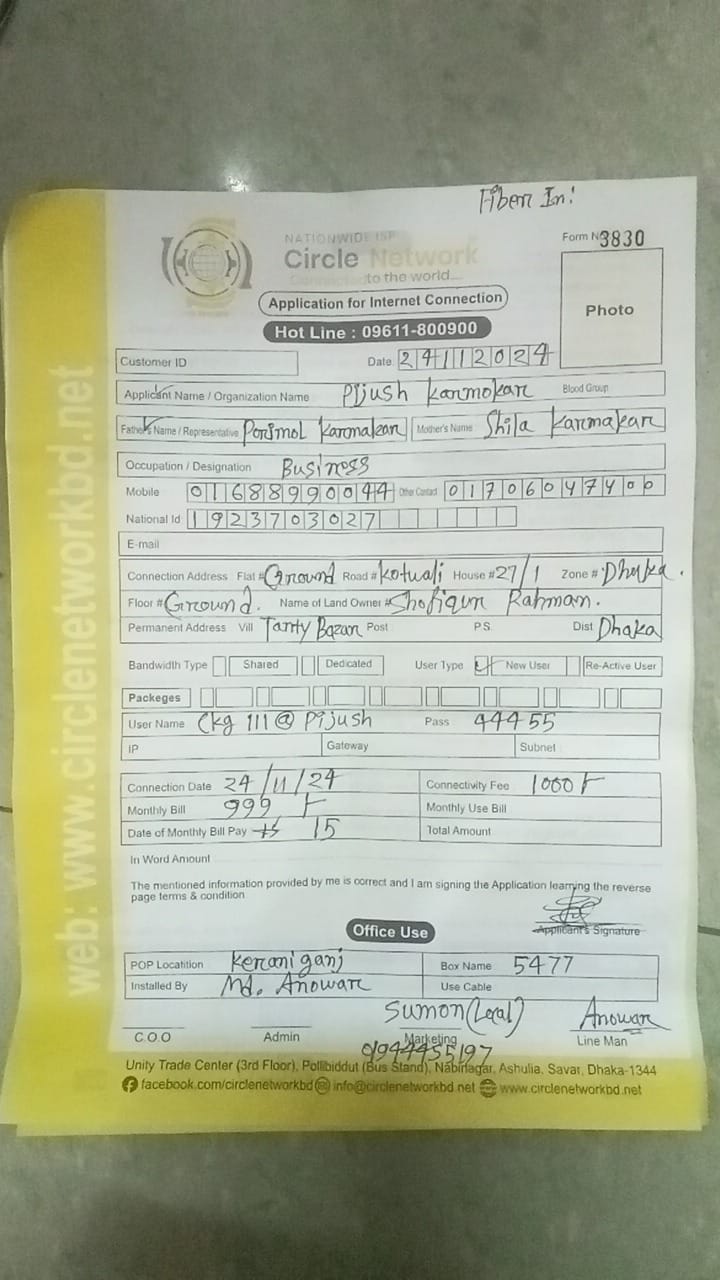 Fiber In:
NATIONWIDE ISP
Form No 3830
Circle Network
Connected to the world...
Photo
Application for Internet Connection
Hot Line : 09611-800900
Customer ID
Date 24112024
Applicant Name / Organization Name Pijush Karmokar Blood Group
Father's Name / Representative Porimol Karmakar Mother's Name Shila Karmakar
Occupation / Designation Business
Mobile 01688990044 Other Contact 01706047400
National Id 1923703027
E-mail
Connection Address Flat # Ground Road # Kotuali House # 27/1 Zone # Dhaka.
Floor # Ground. Name of Land Owner # Shofiqur Rahman.
Permanent Address Vill Tanty Bazar Post P.S. Dist Dhaka
Bandwidth Type Shared Dedicated User Type New User Re-Active User
Packeges
User Name Ckg 111@ Pijush Pass 44455
IP Gateway Subnet
Connection Date 24/11/24 Connectivity Fee 1000/-
Monthly Bill 999 /- Monthly Use Bill
Date of Monthly Bill Pay 15 Total Amount
In Word Amount
The mentioned information provided by me is correct and I am signing the Application learning the reverse
page terms & condition
Applicant's Signature
Office Use
POP Locatition Keraniganj Box Name 5477
Installed By Md. Anowar Use Cable
Sumon (Local) Anowar
C.O.O Admin Marketing Line Man
01944455197
Unity Trade Center (3rd Floor), Pollibiddut (Bus Stand), Nabinagar, Ashulia, Savar, Dhaka-1344
facebook.com/circlenetworkbd info@circlenetworkbd.net www.circlenetworkbd.net
web: www.circlenetworkbd.net